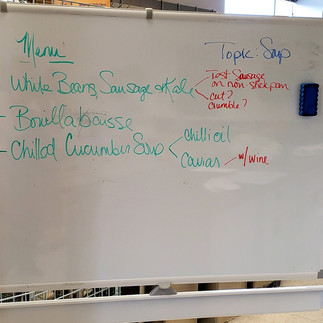 Menu
Topic: Soup
White Beans, Sausage + Kale
Test Sausage
on non stick pan
cut?
crumble?
- Bouillabaisse
- Chilled Cucumber Soup
chili oil
Caviar
w/ wine